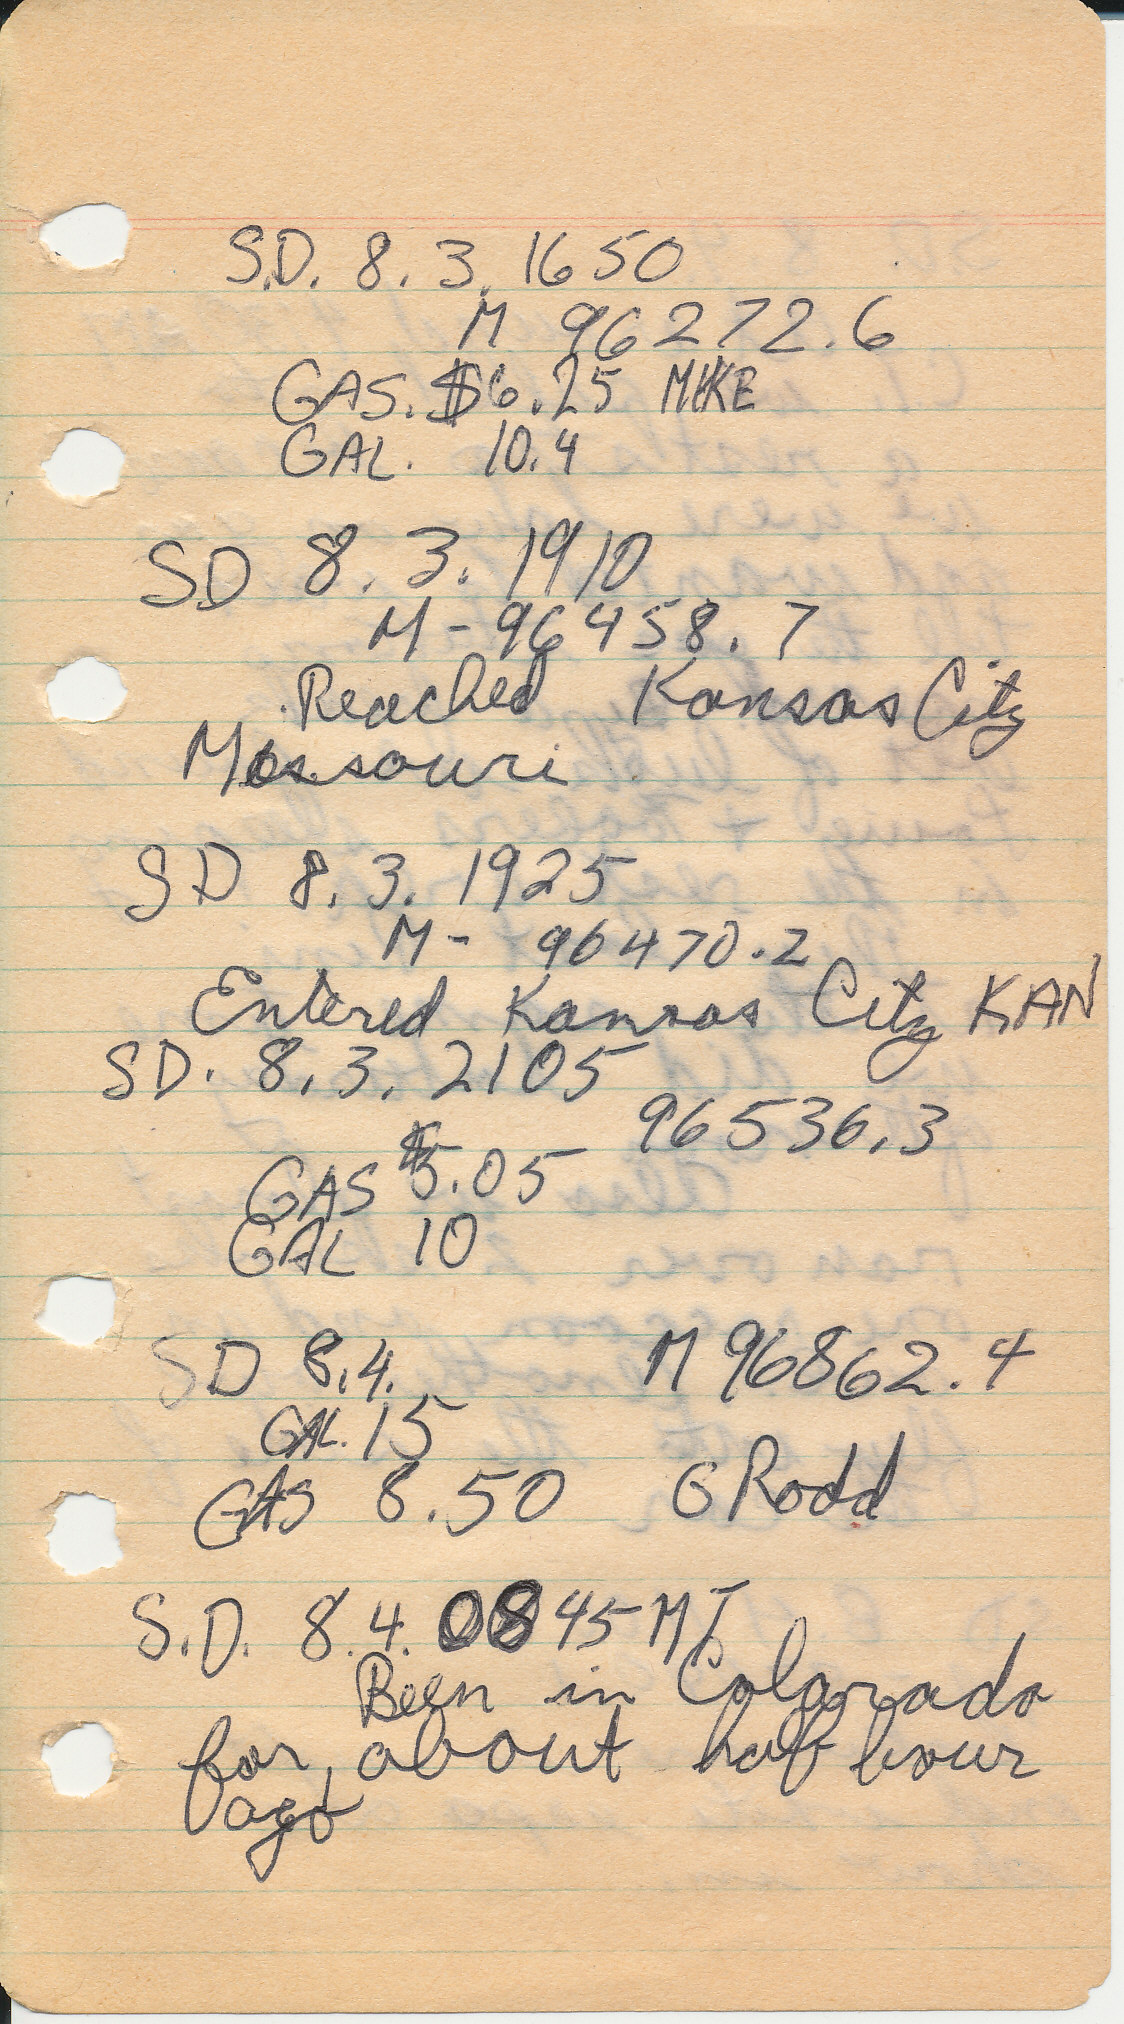 S.D. 8.3.1650
M 96272.6
GAS. $6.25 MIKE
GAL. 10.4
SD 8.3.1910
M-96458.7
Reached Kansas City
Missouri
SD 8.3.1925
M- 96470.2
Entered Kansas City KAN
SD. 8.3.2105
96536.3
GAS $5.05
GAL 10
SD 8.4. M 96862.4
GAL. 15
GAS 8.50 G Rodd
S.D. 8.4.0845 MT
Been in Colorado
for about half hour
ago